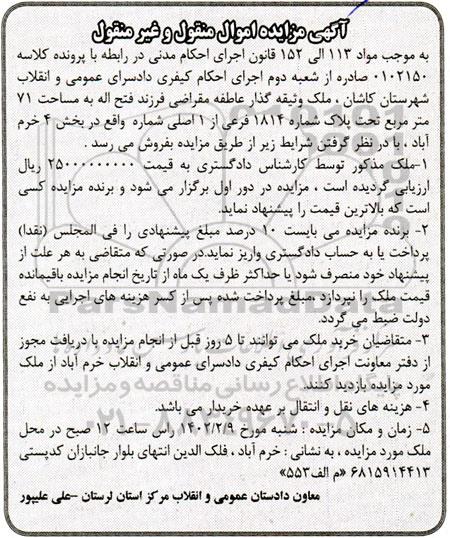 آگهی مزایده اموال منقول و غیر منقول
به موجب مواد ۱۱۳ الی ۱۵۲ قانون اجرای احکام مدنی در رابطه با پرونده کلاسه
۰۱۰۲۱۵۰ صادره از شعبه دوم اجرای احکام کیفری دادسرای عمومی و انقلاب
شهرستان کاشان ، ملک وثیقه گذار عاطفه مقراضی فرزند فتح اله به مساحت ۷۱
متر مربع تحت پلاک شماره ۱۸۱۴ فرعی از ۱ اصلی شماره واقع در بخش ۴ خرم
آباد ، با در نظر گرفتن شرایط زیر از طریق مزایده بفروش می رسد .
۱-ملک مذکور توسط کارشناس دادگستری به قیمت ۲۵۰۰۰۰۰۰۰۰۰ ریال
ارزیابی گردیده است ، مزایده در دور اول برگزار می شود و برنده مزایده کسی
است که بالاترین قیمت را پیشنهاد نماید.
۲- برنده مزایده می بایست ۱۰ درصد مبلغ پیشنهادی را فی المجلس (نقدا)
پرداخت یا به حساب دادگستری واریز نماید.در صورتی که متقاضی به هر علت از
پیشنهاد خود منصرف شود یا حداکثر ظرف یک ماه از تاریخ انجام مزایده باقیمانده
قیمت ملک را نپردازد ،مبلغ پرداخت شده پس از کسر هزینه های اجرایی به نفع
دولت ضبط می گردد.
۳- متقاضیان خرید ملک می توانند تا ۵ روز قبل از انجام مزایده با دریافت مجوز
از دفتر معاونت اجرای احکام کیفری دادسرای عمومی و انقلاب خرم آباد از ملک
مورد مزایده بازدید کنند.
۴- هزینه های نقل و انتقال بر عهده خریدار می باشد.
۵- زمان و مکان مزایده : شنبه مورخ ۱۴۰۲/۲/۹ راس ساعت ۱۲ صبح در محل
ملک مورد مزایده ، به نشانی : خرم آباد ، فلک الدین انتهای بلوار جانبازان کدپستی
۶۸۱۵۹۱۴۴۱۳ «م الف۵۵۳»
معاون دادستان عمومی و انقلاب مرکز استان لرستان -علی علیپور